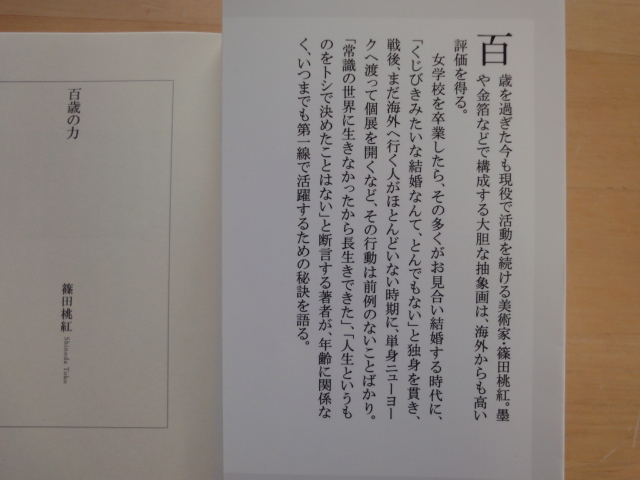 百歳を過ぎた今も現役で活動を続ける美術家・篠田桃紅。墨
や金箔などで構成する大胆な抽象画は、海外からも高い
評価を得る。
女学校を卒業したら、その多くがお見合い結婚する時代に、
「くじびきみたいな結婚なんて、とんでもない」と独身を貫き、
戦後、まだ海外へ行く人がほとんどいない時期に、単身ニューヨー
クへ渡って個展を開くなど、その行動は前例のないことばかり。
「常識の世界に生きなかったから長生きできた」、「人生というも
のをトシで決めたことはない」と断言する著者が、年齢に関係な
く、いつまでも第一線で活躍するための秘訣を語る。
百歳の力
篠田桃紅 Shinoda Toko